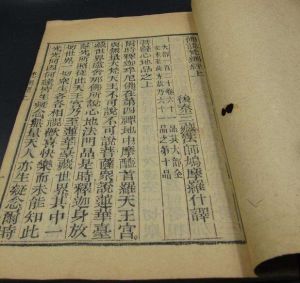 佛說梵網經上
後秦三藏法師鳩摩羅什譯
菩薩心地品之上
爾時釋迦牟尼佛在第四禪地中摩醯首羅天王宮
與無量大梵天王不可說不可說菩薩眾說蓮華臺藏
世界盧舍那佛所說心地法門品是時釋迦身放
慧光所照從此天王宮乃至蓮華臺藏世界其中一
切世界一切眾生各各相視歡喜快樂而未能知此
光光何因何緣皆生疑念無量天人亦生疑念爾時